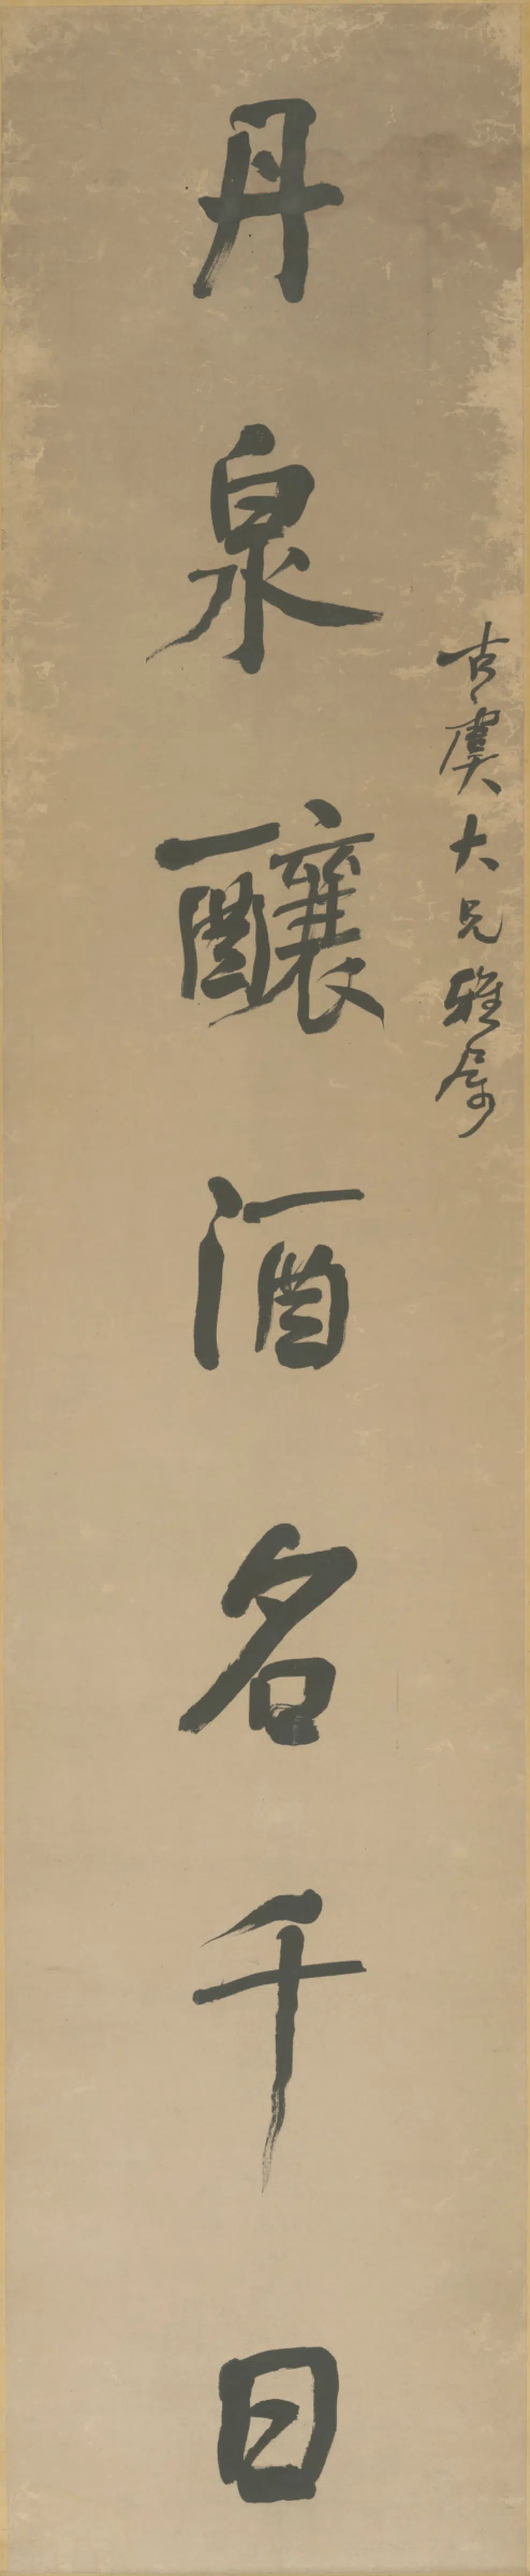 古虞大兄雅属
丹泉釀酒名千日